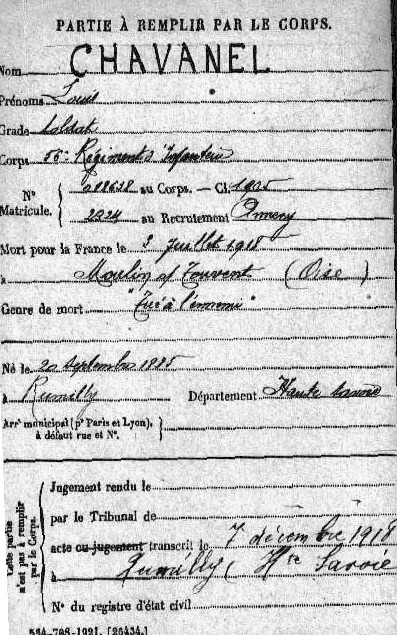 PARTIE À REMPLIR PAR LE CORPS.
Nom CHAVANEL
Prénoms Louis
Grade Soldat
Corps 56e Régiment d'Infanterie
N° Matricule. { 018638 au Corps. — Cl. 1905
2024 au Recrutement Annecy
Mort pour la France le 3 Juillet 1918
à Moulin s/ Touvent (Oise)
Genre de mort "Tué à l'ennemi"
Né le 20 Septembre 1885
à Rumilly Département Haute Savoie
Arrt municipal (pr Paris et Lyon), à défaut rue et N°. }
Cette partie n'est pas à remplir par le Corps.
Jugement rendu le
par le Tribunal de
acte ou jugement transcrit le 7 décembre 1918
à Rumilly, Hte Savoie
N° du registre d'état civil
534-708-1921. [26434.]